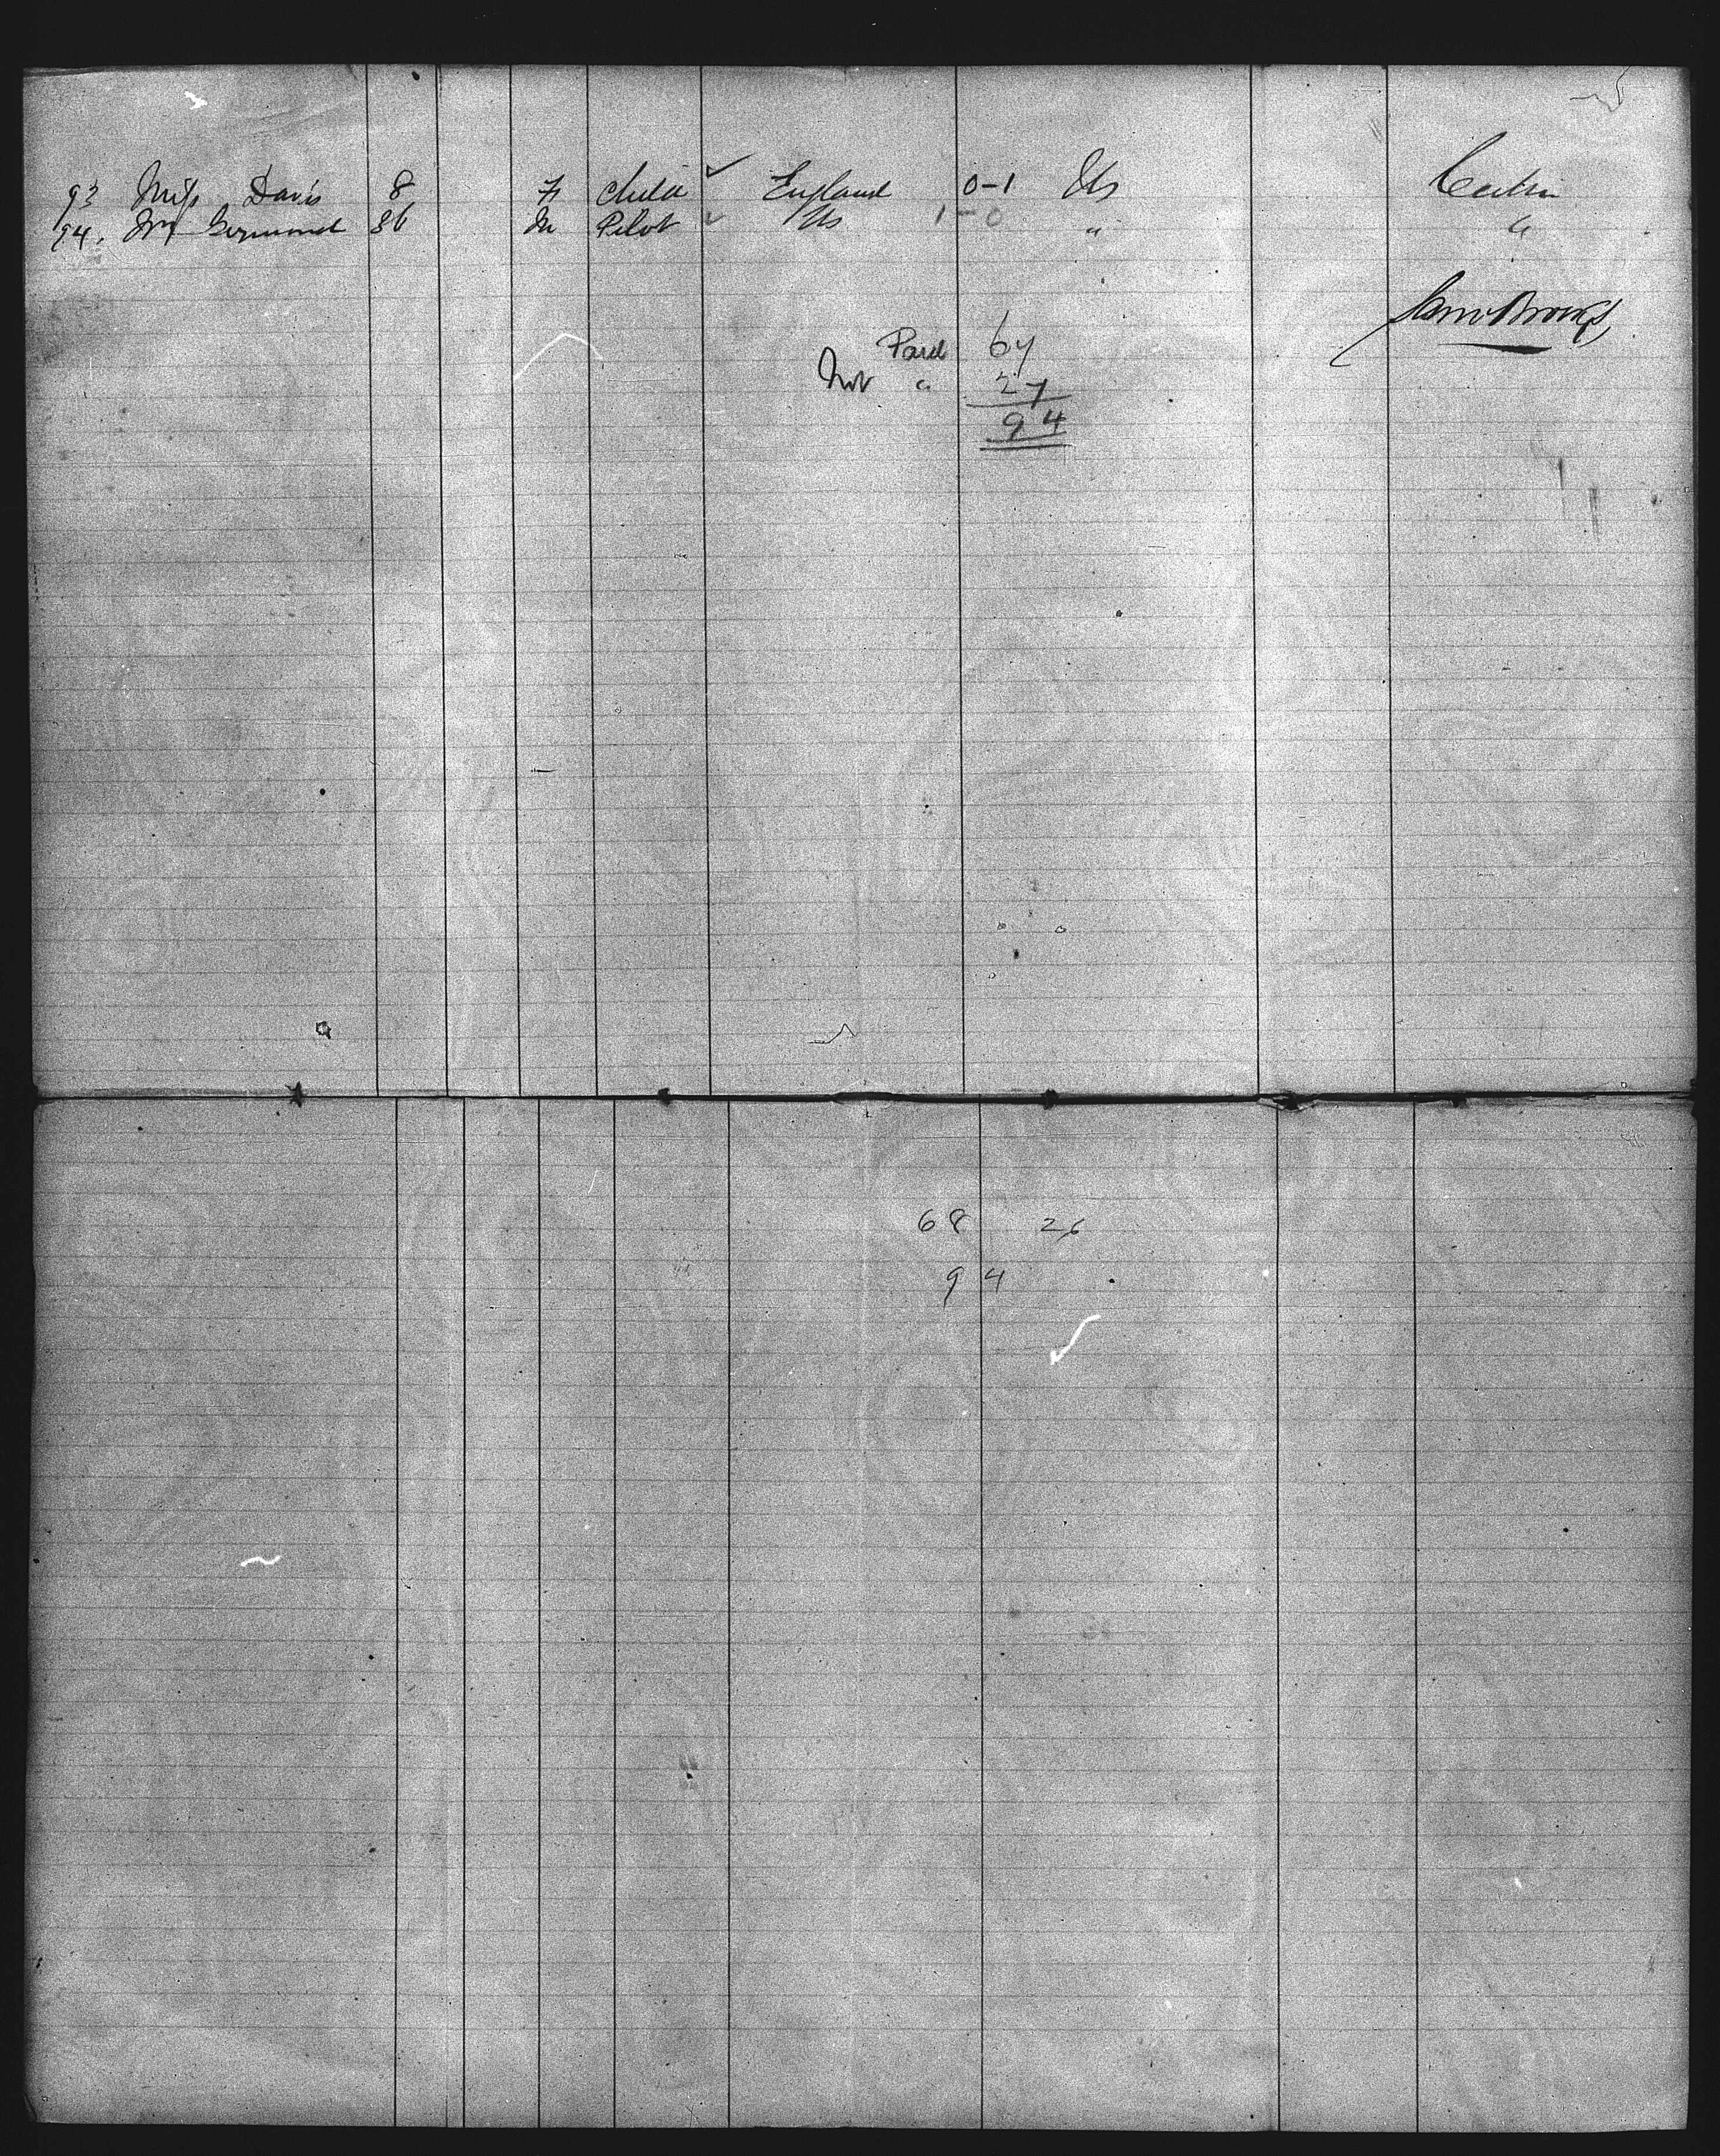 93 Miss Davis 8 F Child ✓ England 0-1 US Cabin
94. Mr Germond 36 M Pilot ✓ US 1-0 "  "
Paid 67
Not " 27
94
68 26
94